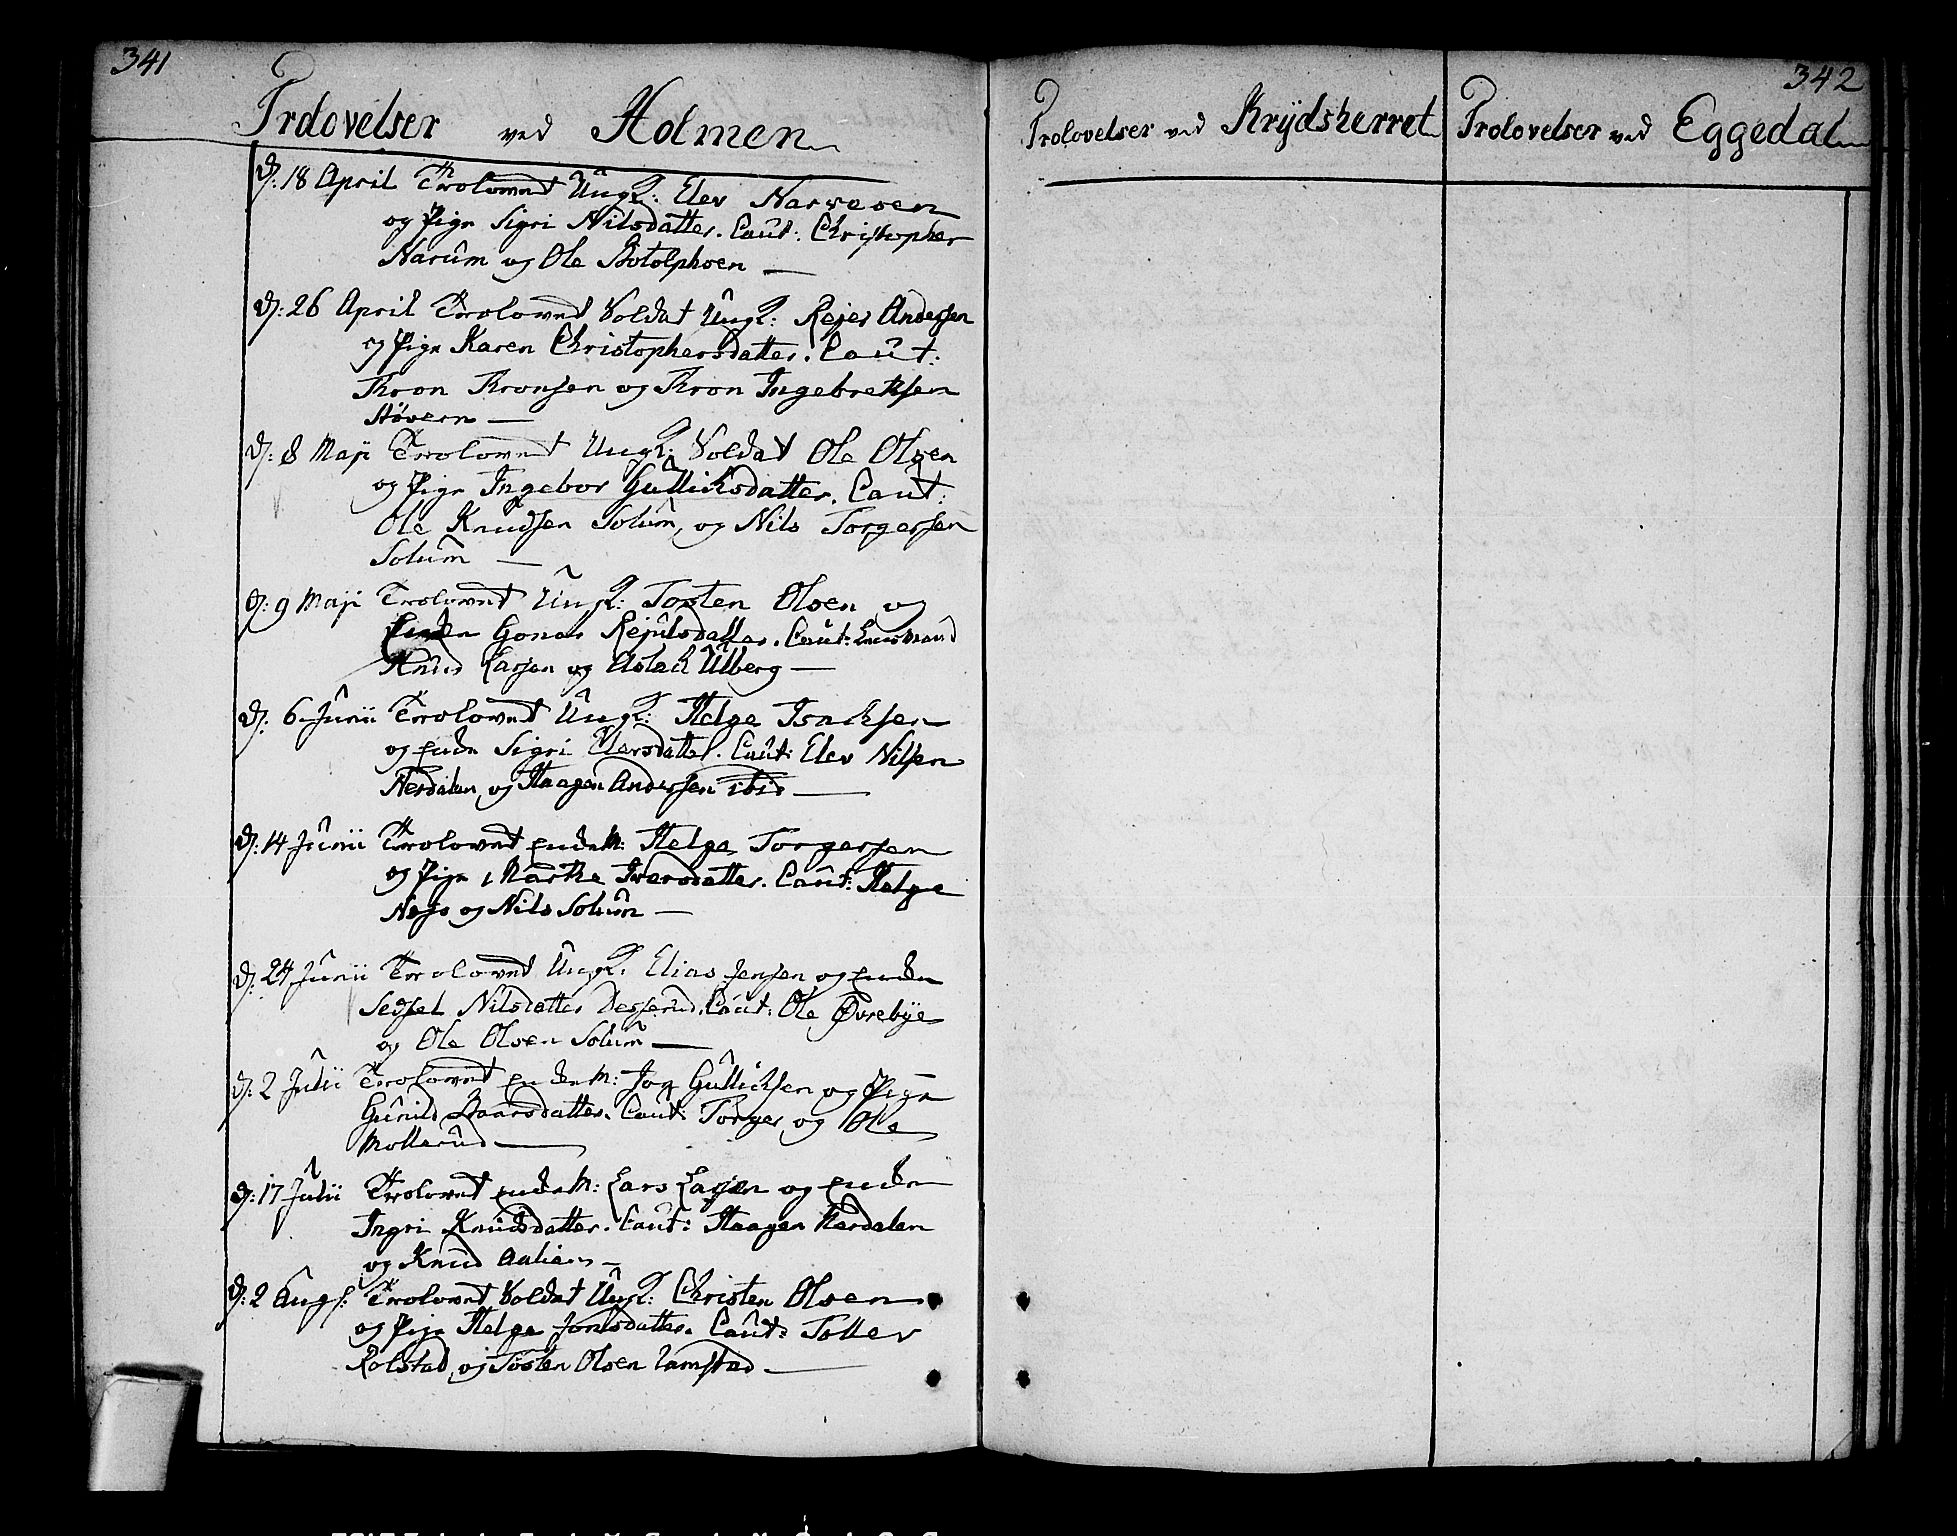 341
Trolovelser ved Holmen
D: 18 April Trolovet Ungk: Elev Narveoen
og Pige Sigri Nilsdatter. Caut: Christopher
Narum og Ole Botolphoen
D: 26 April Trolovet Soldat Ungk: Rejer Andersen
og Pige Karen Christophersdatter. Caut:
Thron Thronsen og Thron Ingebretsen
Høvern
D: 8 Maji Trolovet Ungk: Soldat Ole Olsen
og Pige Ingebor Gullichsdatter. Caut:
Ole Knudsen Solum, og Nils Torgersen
Solum
D: 9 Maji Trolovet Ungk: Tosten Olsen og
Enken Gonor Rejulsdatter. Caut:
Knud Larsen og Aslach Ulberg
D: 6 Junii Trolovet Ungk: Helge Isachsen
og Enke Sigri Elersdatter. Caut: Elev Nilsen
Nerdalen, og Haagen Andersen ibid
D: 14 Junii Trolovet Enkem: Helge Torgersen
og Pige Marthe Iversdatter. Caut: Helge
Næss og Nils Solum
D: 24 Junii Trolovet Ungk: Elias Jensen og Enken
Sedsel Nilsdatter Desserud. Caut: Ole Øvrebye
og Ole Olsen Solum
D: 2 Julii Trolovet Enkem: Joen Gullichsen og Pige
Gunild Baarsdatter. Caut: Torger og Ole
Mollerud
D: 17 Julii Trolovet Enkem: Lars Larsen og Enken
Ingri Knudsdatter. Caut: Haagen Nerdalen
og Knud Aalien
D: 2 Augs: Trolovet Soldat Ungk: Christen Olsen
og Pige Helge Jonsdatter. Caut: Tollev
Kolstad, og Tosten Olsen Ramstad
342
Trolovelser ved Krydsherret
Trolovelser ved Eggedal